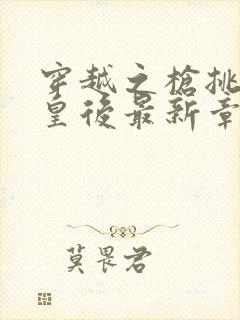 穿越之槍挑
皇後最新章
莫畏君